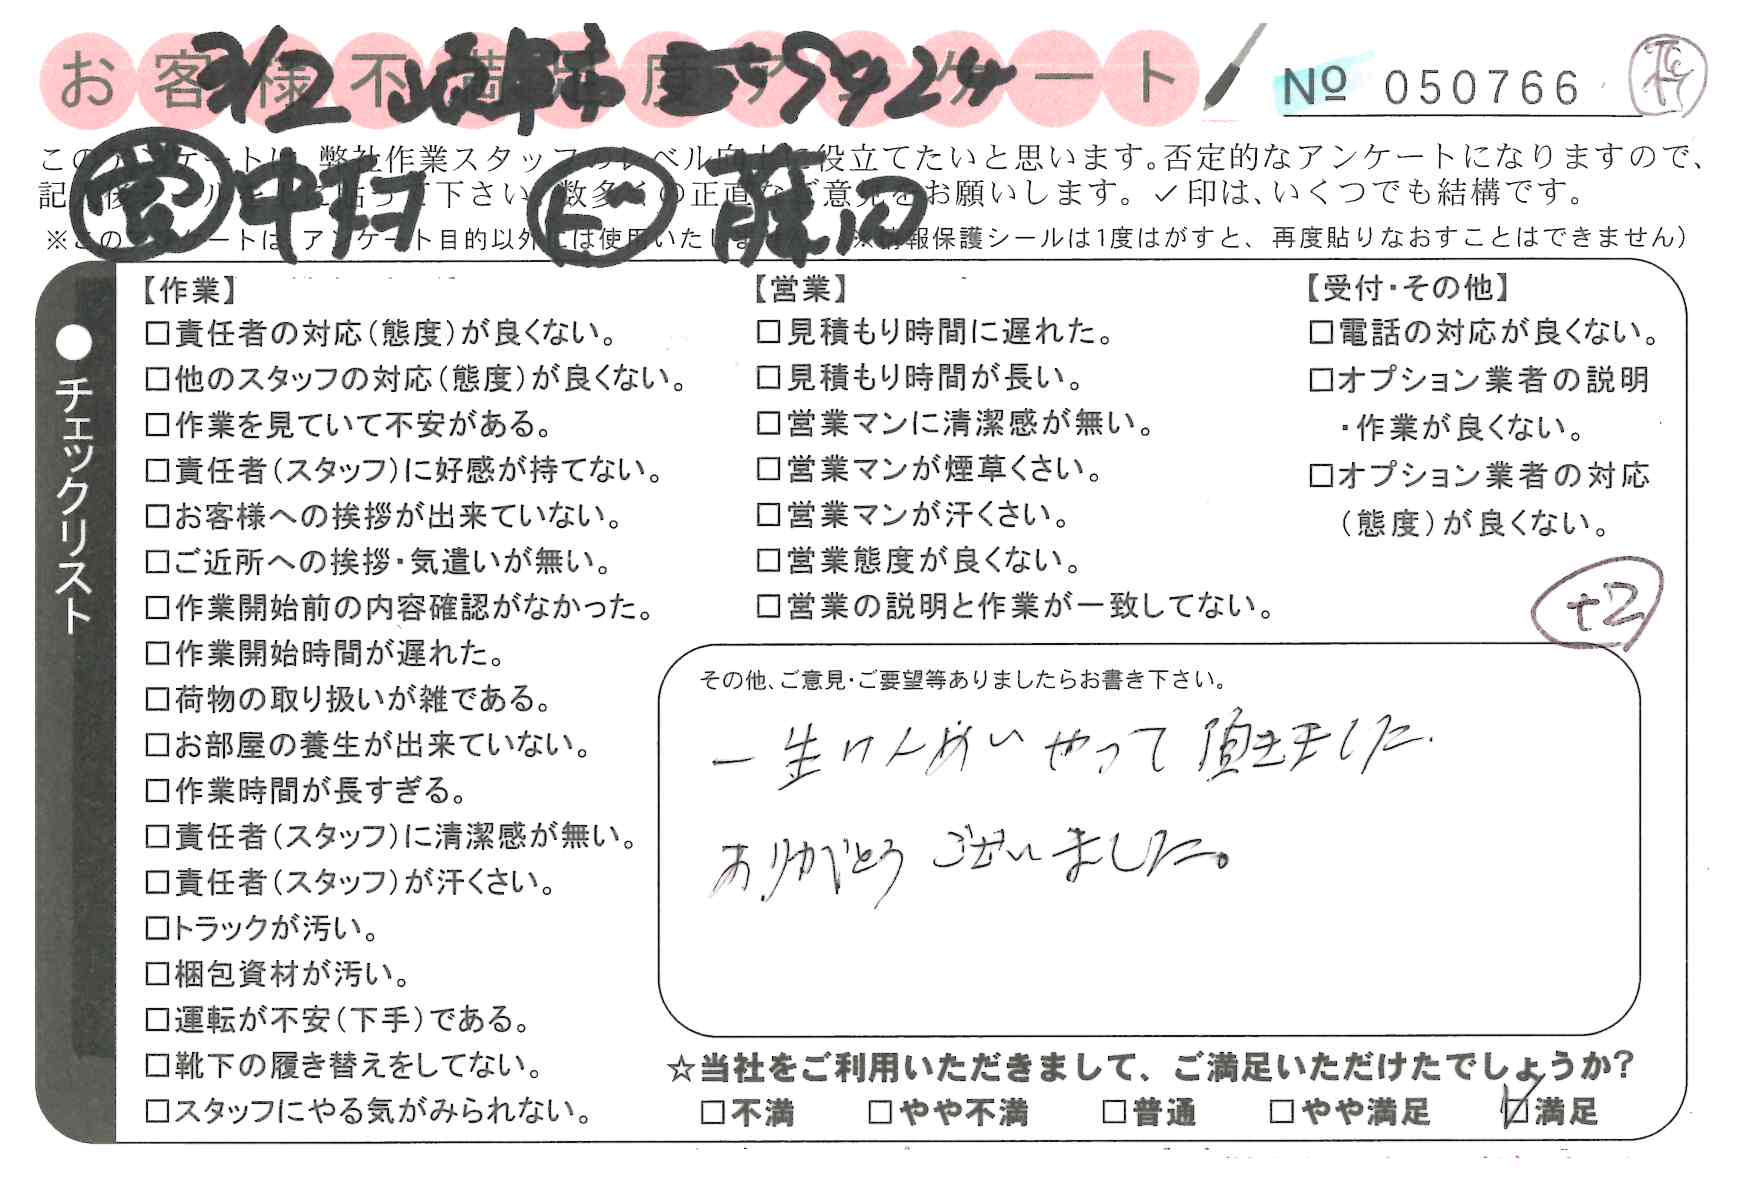 お客様不満足度アンケート
№ 050766
3/2
424
営 中村 ド 藤田
このアンケートは、弊社作業スタッフのレベル向上に役立てたいと思います。否定的なアンケートになりますので、
記入後シールを上に貼って下さい。数多くの正直なご意見をお願いします。✓印は、いくつでも結構です。
※このアンケートは、アンケート目的以外には使用いたしません。※情報保護シールは1度はがすと、再度貼りなおすことはできません)
●チェックリスト
【作業】
□責任者の対応(態度)が良くない。
□他のスタッフの対応(態度)が良くない。
□作業を見ていて不安がある。
□責任者(スタッフ)に好感が持てない。
□お客様への挨拶が出来ていない。
□ご近所への挨拶・気遣いが無い。
□作業開始前の内容確認がなかった。
□作業開始時間が遅れた。
□荷物の取り扱いが雑である。
□お部屋の養生が出来ていない。
□作業時間が長すぎる。
□責任者(スタッフ)に清潔感が無い。
□責任者(スタッフ)が汗くさい。
□トラックが汚い。
□梱包資材が汚い。
□運転が不安(下手)である。
□靴下の履き替えをしてない。
□スタッフにやる気がみられない。
【営業】
□見積もり時間に遅れた。
□見積もり時間が長い。
□営業マンに清潔感が無い。
□営業マンが煙草くさい。
□営業マンが汗くさい。
□営業態度が良くない。
□営業の説明と作業が一致してない。
【受付・その他】
□電話の対応が良くない。
□オプション業者の説明
・作業が良くない。
□オプション業者の対応
(態度)が良くない。
+2
その他、ご意見・ご要望等ありましたらお書き下さい。
一生けんめいやって頂きました.
ありがとうございました。
☆当社をご利用いただきまして、ご満足いただけたでしょうか?
□不満 □やや不満 □普通 □やや満足 ☑満足